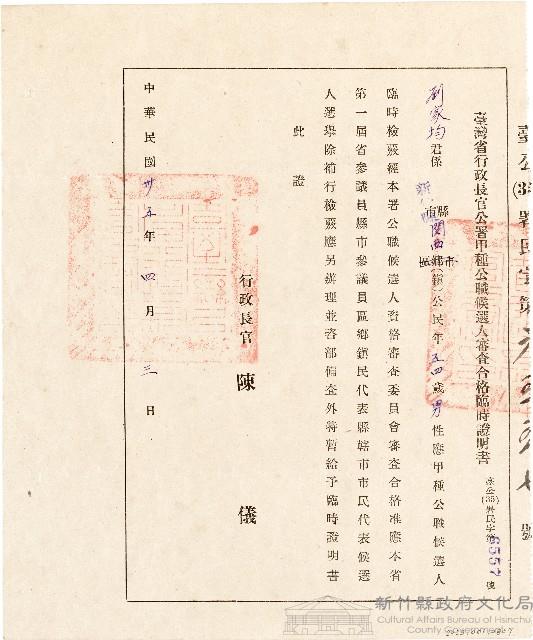 臺公(35)署民字第 號
臺灣省行政長官公署甲種公職候選人審查合格臨時證明書
臺公(35)署民字第6557號
劉家均君係新竹縣市關西鄉(鎮)區市公民年五四歲男性應甲種公職候選人
臨時檢覈經本署公職候選人資格審查委員會審查合格准應本省
第一屆省參議員縣市參議員區鄉鎮民代表縣轄市市民代表候選
人選舉除補行檢覈應另辦理並咨部備查外特暫給予臨時證明書
此證
行政長官 陳儀
中華民國卅五年四月三日
新竹縣政府文化局
Cultural Affairs Bureau of Hsinchu
County Government